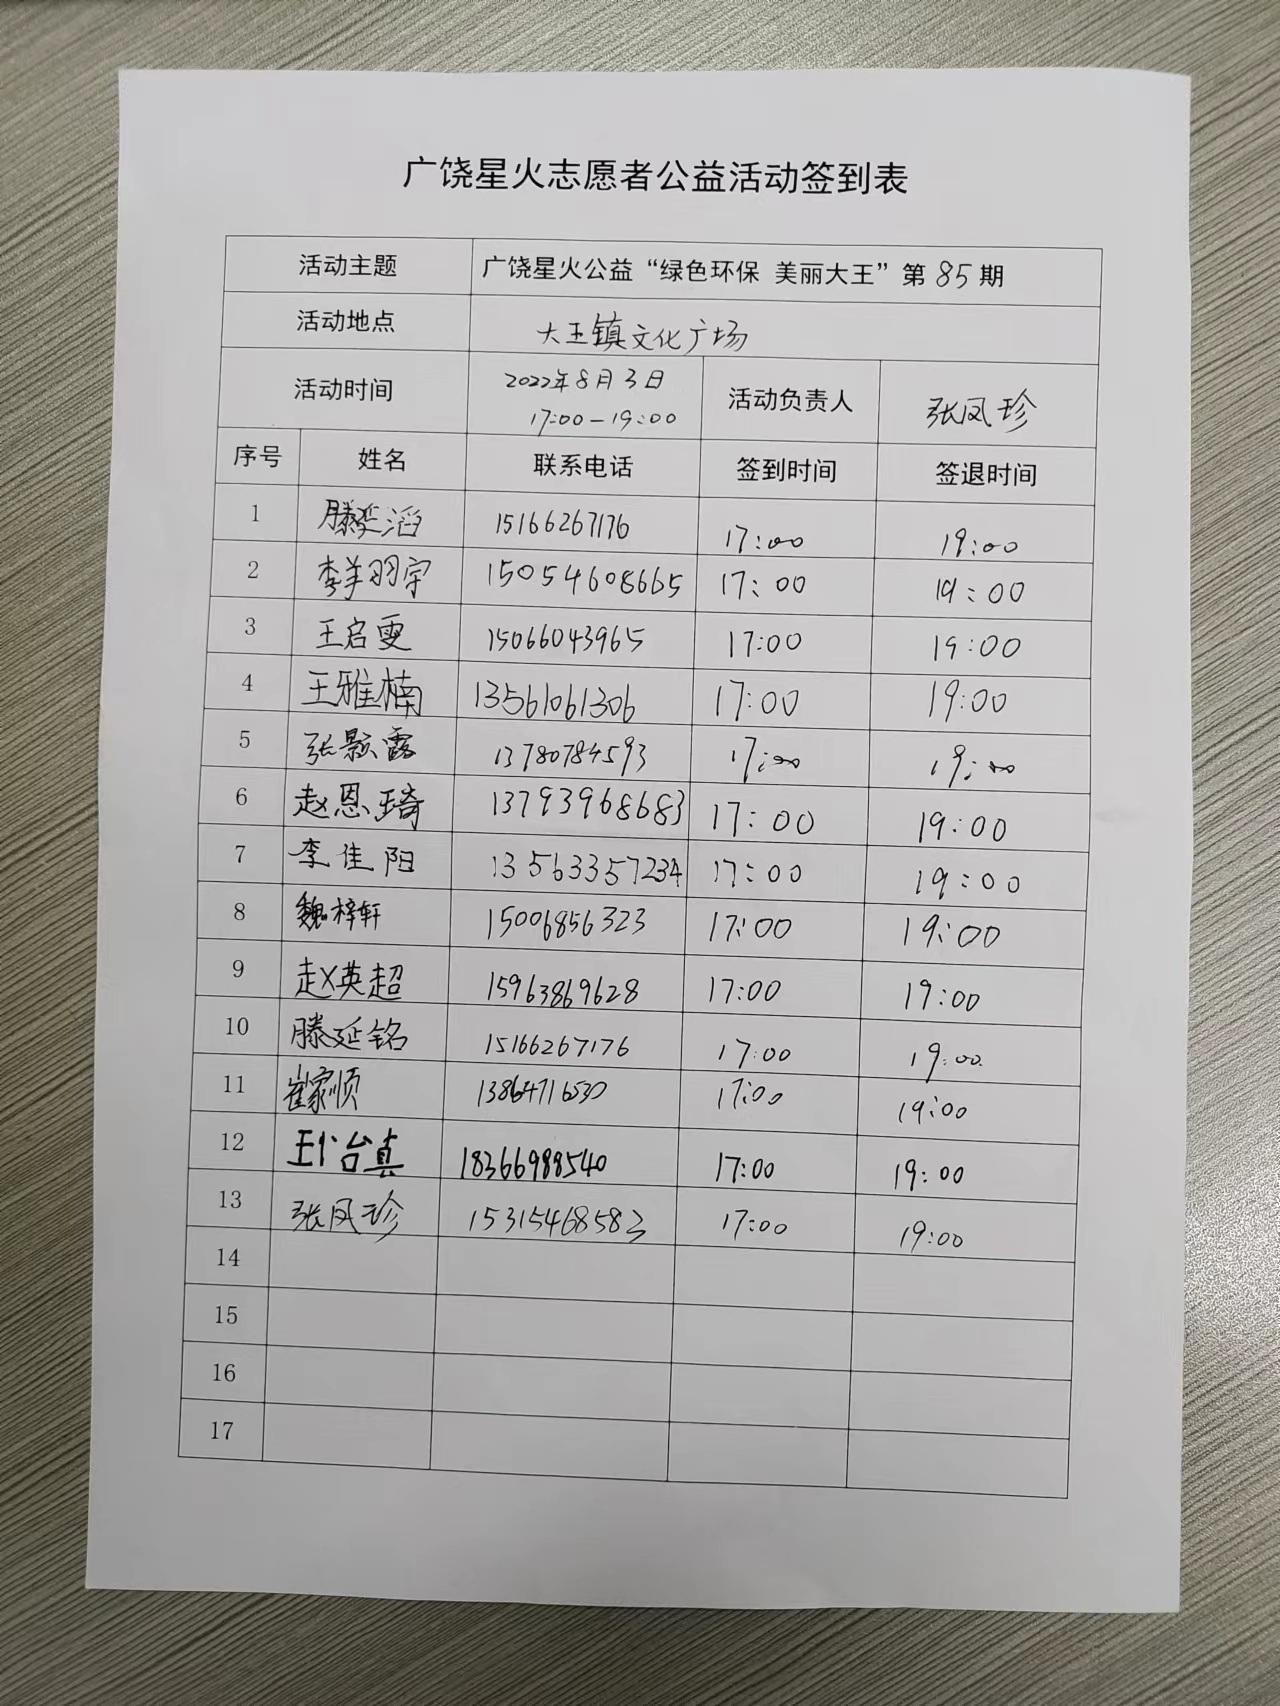 广饶星火志愿者公益活动签到表
活动主题 广饶星火公益“绿色环保 美丽大王”第 85 期
活动地点 大王镇文化广场
活动时间 2022年8月3日 17:00-19:00 活动负责人 张凤珍
序号 姓名 联系电话 签到时间 签退时间
1 滕延滔 15166267176 17:00 19:00
2 李羊羽宇 15054608665 17:00 19:00
3 王启雯 15066043965 17:00 19:00
4 王雅楠 13561061306 17:00 19:00
5 张颢露 13780784593 17:00 19:00
6 赵恩琦 13793968683 17:00 19:00
7 李佳阳 13563357234 17:00 19:00
8 魏梓轩 15006856323 17:00 19:00
9 赵英超 15963869628 17:00 19:00
10 滕延铭 15166267176 17:00 19:00
11 崔家顺 13864716530 17:00 19:00
12 18366988540 17:00 19:00
13 张凤珍 15315468583 17:00 19:00
14
15
16
17